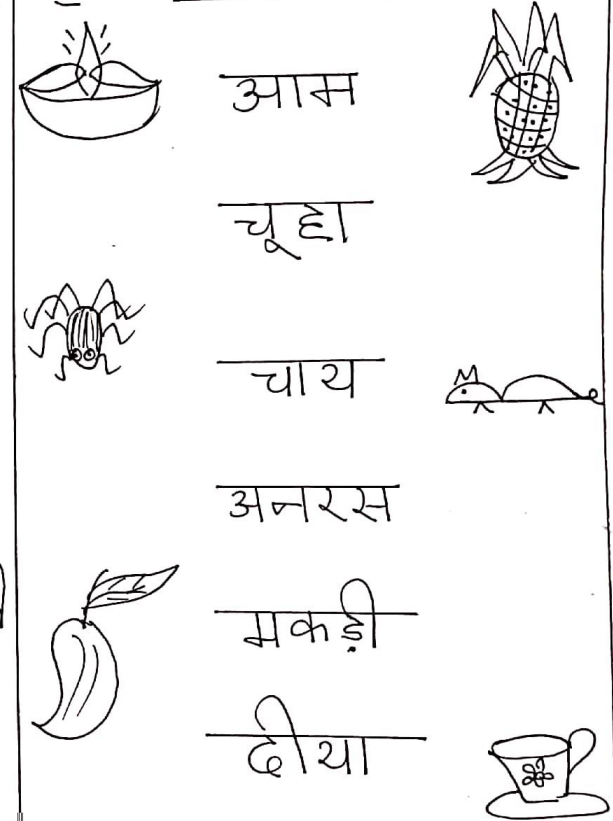 आम
चूहा
चाय
अनरस
मकड़ी
दीया